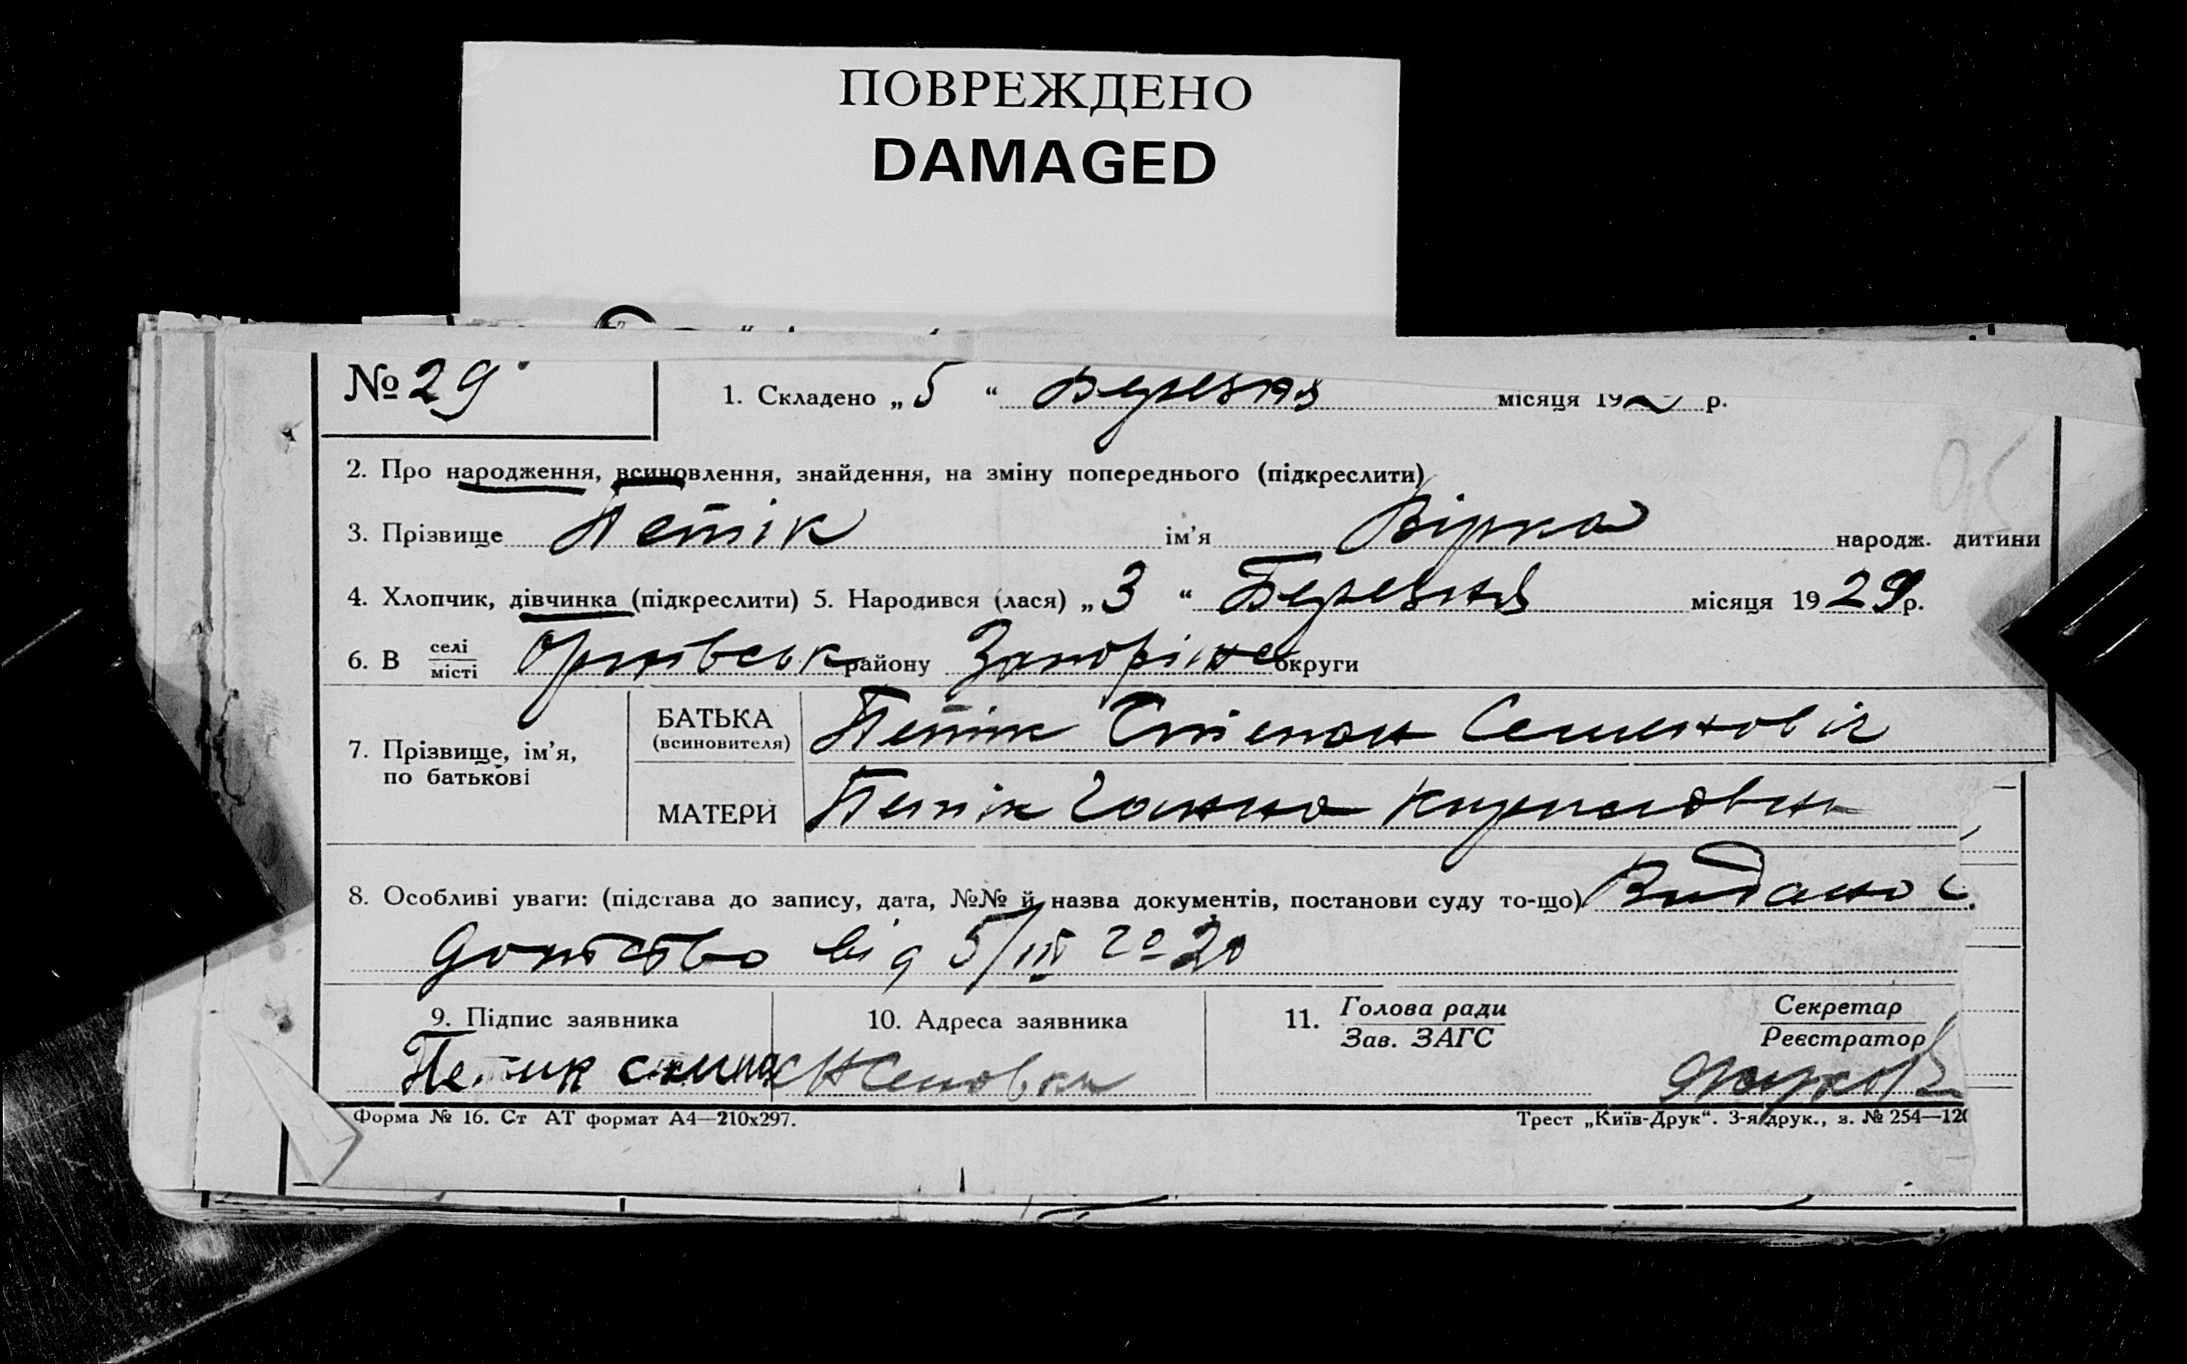 ПОВРЕЖДЕНО
DAMAGED
№ 29
1. Складено „ 5 “ Березня місяця 192 р.
2. Про народження, всиновлення, знайдення, на зміну попереднього (підкреслити)
3. Прізвище Петік ім’я Вірка народж. дитини
4. Хлопчик, дівчинка (підкреслити) 5. Народився (лася) „ 3 “ Березня місяця 1929 р.
6. В селі місті району Запоріжс округи
7. Прізвище, ім’я, по батькові
БАТЬКА (всиновителя) Петік Степан Семеновіч
МАТЕРИ Петік Ганна
8. Особливі уваги: (підстава до запису, дата, №№ й назва документів, постанови суду то-що) Видано
від 5/III
9. Підпис заявника
10. Адреса заявника
11. Голова ради Зав. ЗАГС
Секретар Реєстратор
Петик
Форма № 16. Ст АТ формат А4—210х297.
Трест „Київ-Друк“. 3-я друк., з. № 254—12